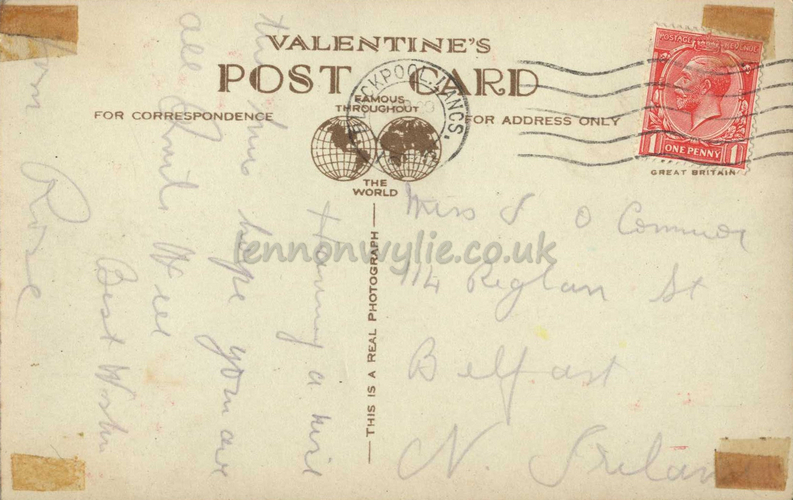 VALENTINE'S
POST CARD
FAMOUS
THROUGHOUT
THE
WORLD
FOR CORRESPONDENCE
FOR ADDRESS ONLY
BLACKPOOL. LANCS.
POSTAGE REVENUE
1 ONE PENNY 1
GREAT BRITAIN
THIS IS A REAL PHOTOGRAPH
Having a nice
time hope you are
all well
Best Wishes
from Rose
Miss J O Connor
114 Reglan St
Belfast
N. Ireland
lennonwylie.co.uk